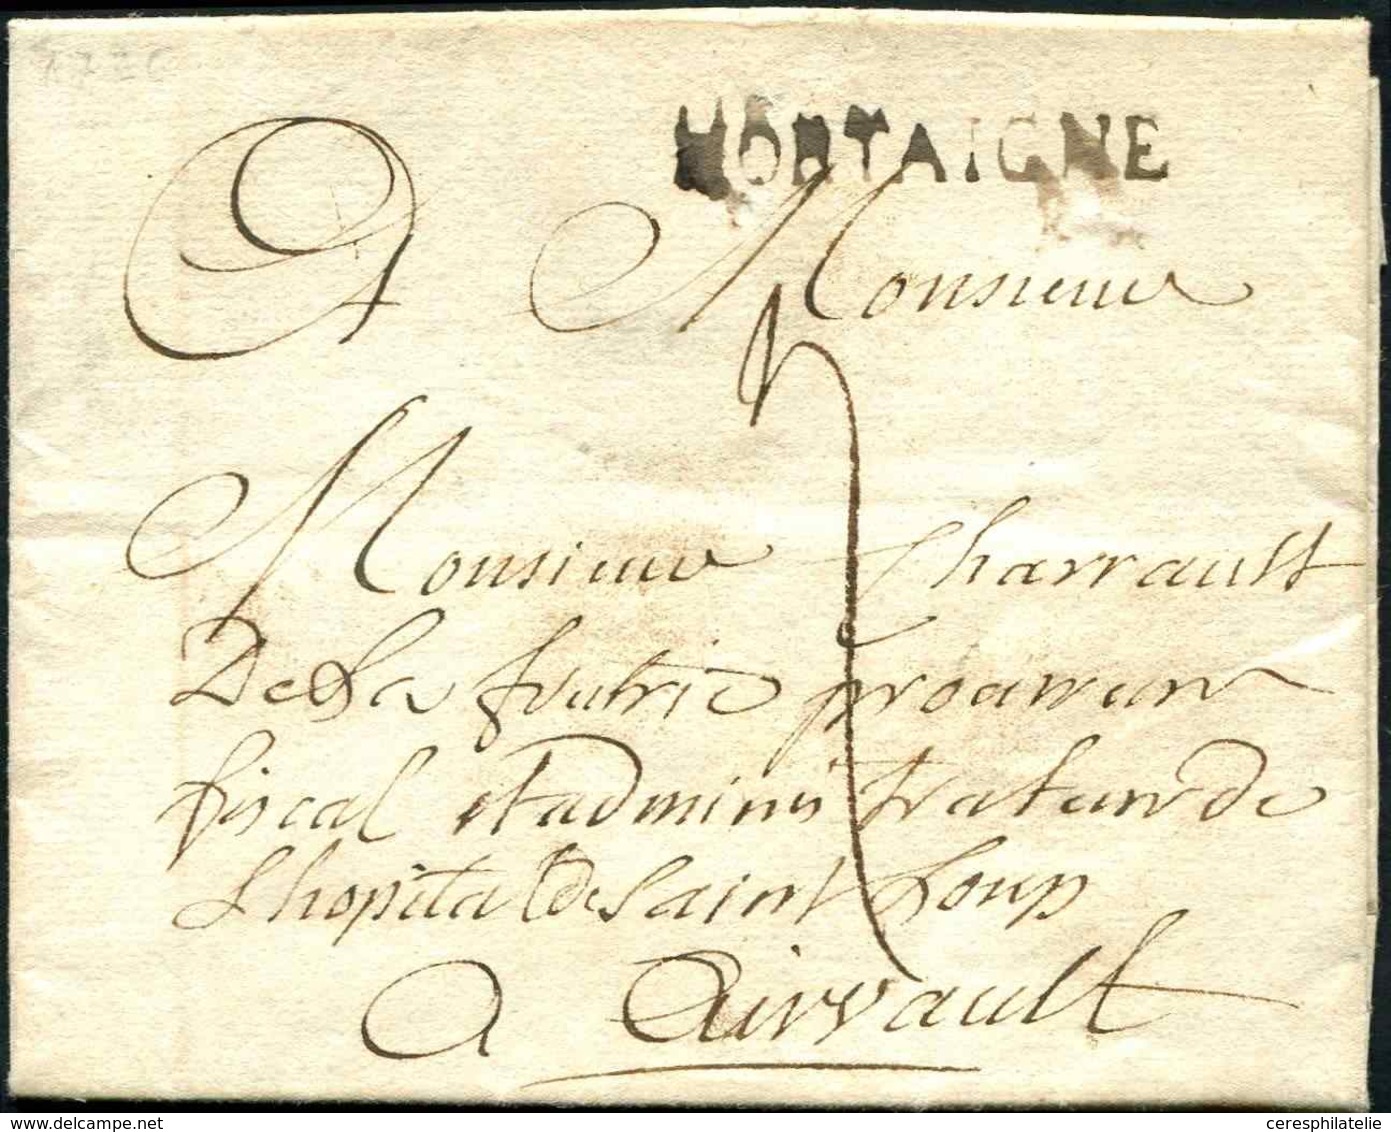 MORTAIGNE
A Monsieur
Monsieur Charrault
De La futrie procureur
fiscal et administrateur de
Lhopital de Saint Loup
A Airvault
ceresphilatelie